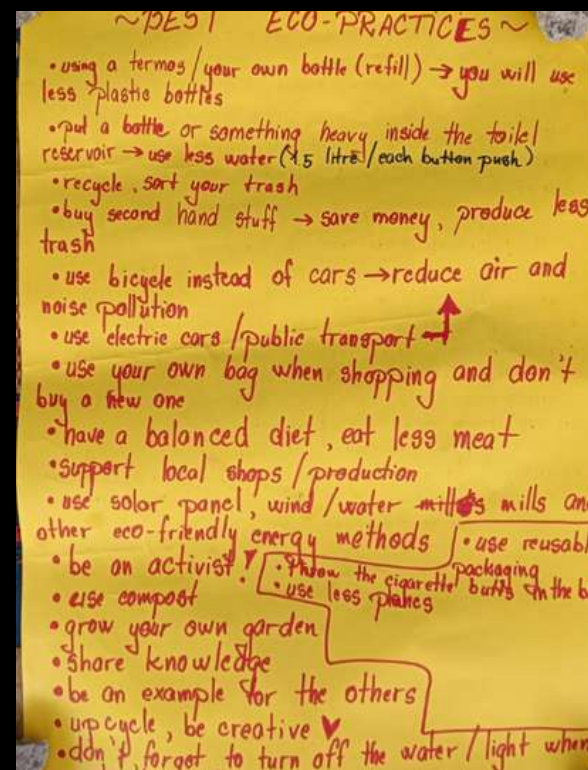 ~BEST ECO-PRACTICES~
• using a termos/your own bottle (refill) → you will use
less plastic bottles
• put a bottle or something heavy inside the toilet
reservoir → use less water (1,5 litre/each button push)
• recycle, sort your trash
• buy second hand stuff → save money, produce less
trash
• use bicycle instead of cars → reduce air and
noise pollution
• use electric cars/public transport
• use your own bag when shopping and don't
buy a new one
• have a balanced diet, eat less meat
• support local shops/production
• use solar panel, wind/water mills and
other eco-friendly energy methods
• be an activist!
• use compost
• grow your own garden
• share knowledge
• be an example for the others
• upcycle, be creative ♥
• don't forget to turn off the water/light when
• use reusabl
packaging
• throw the cigarette butts in the b
• use less planes